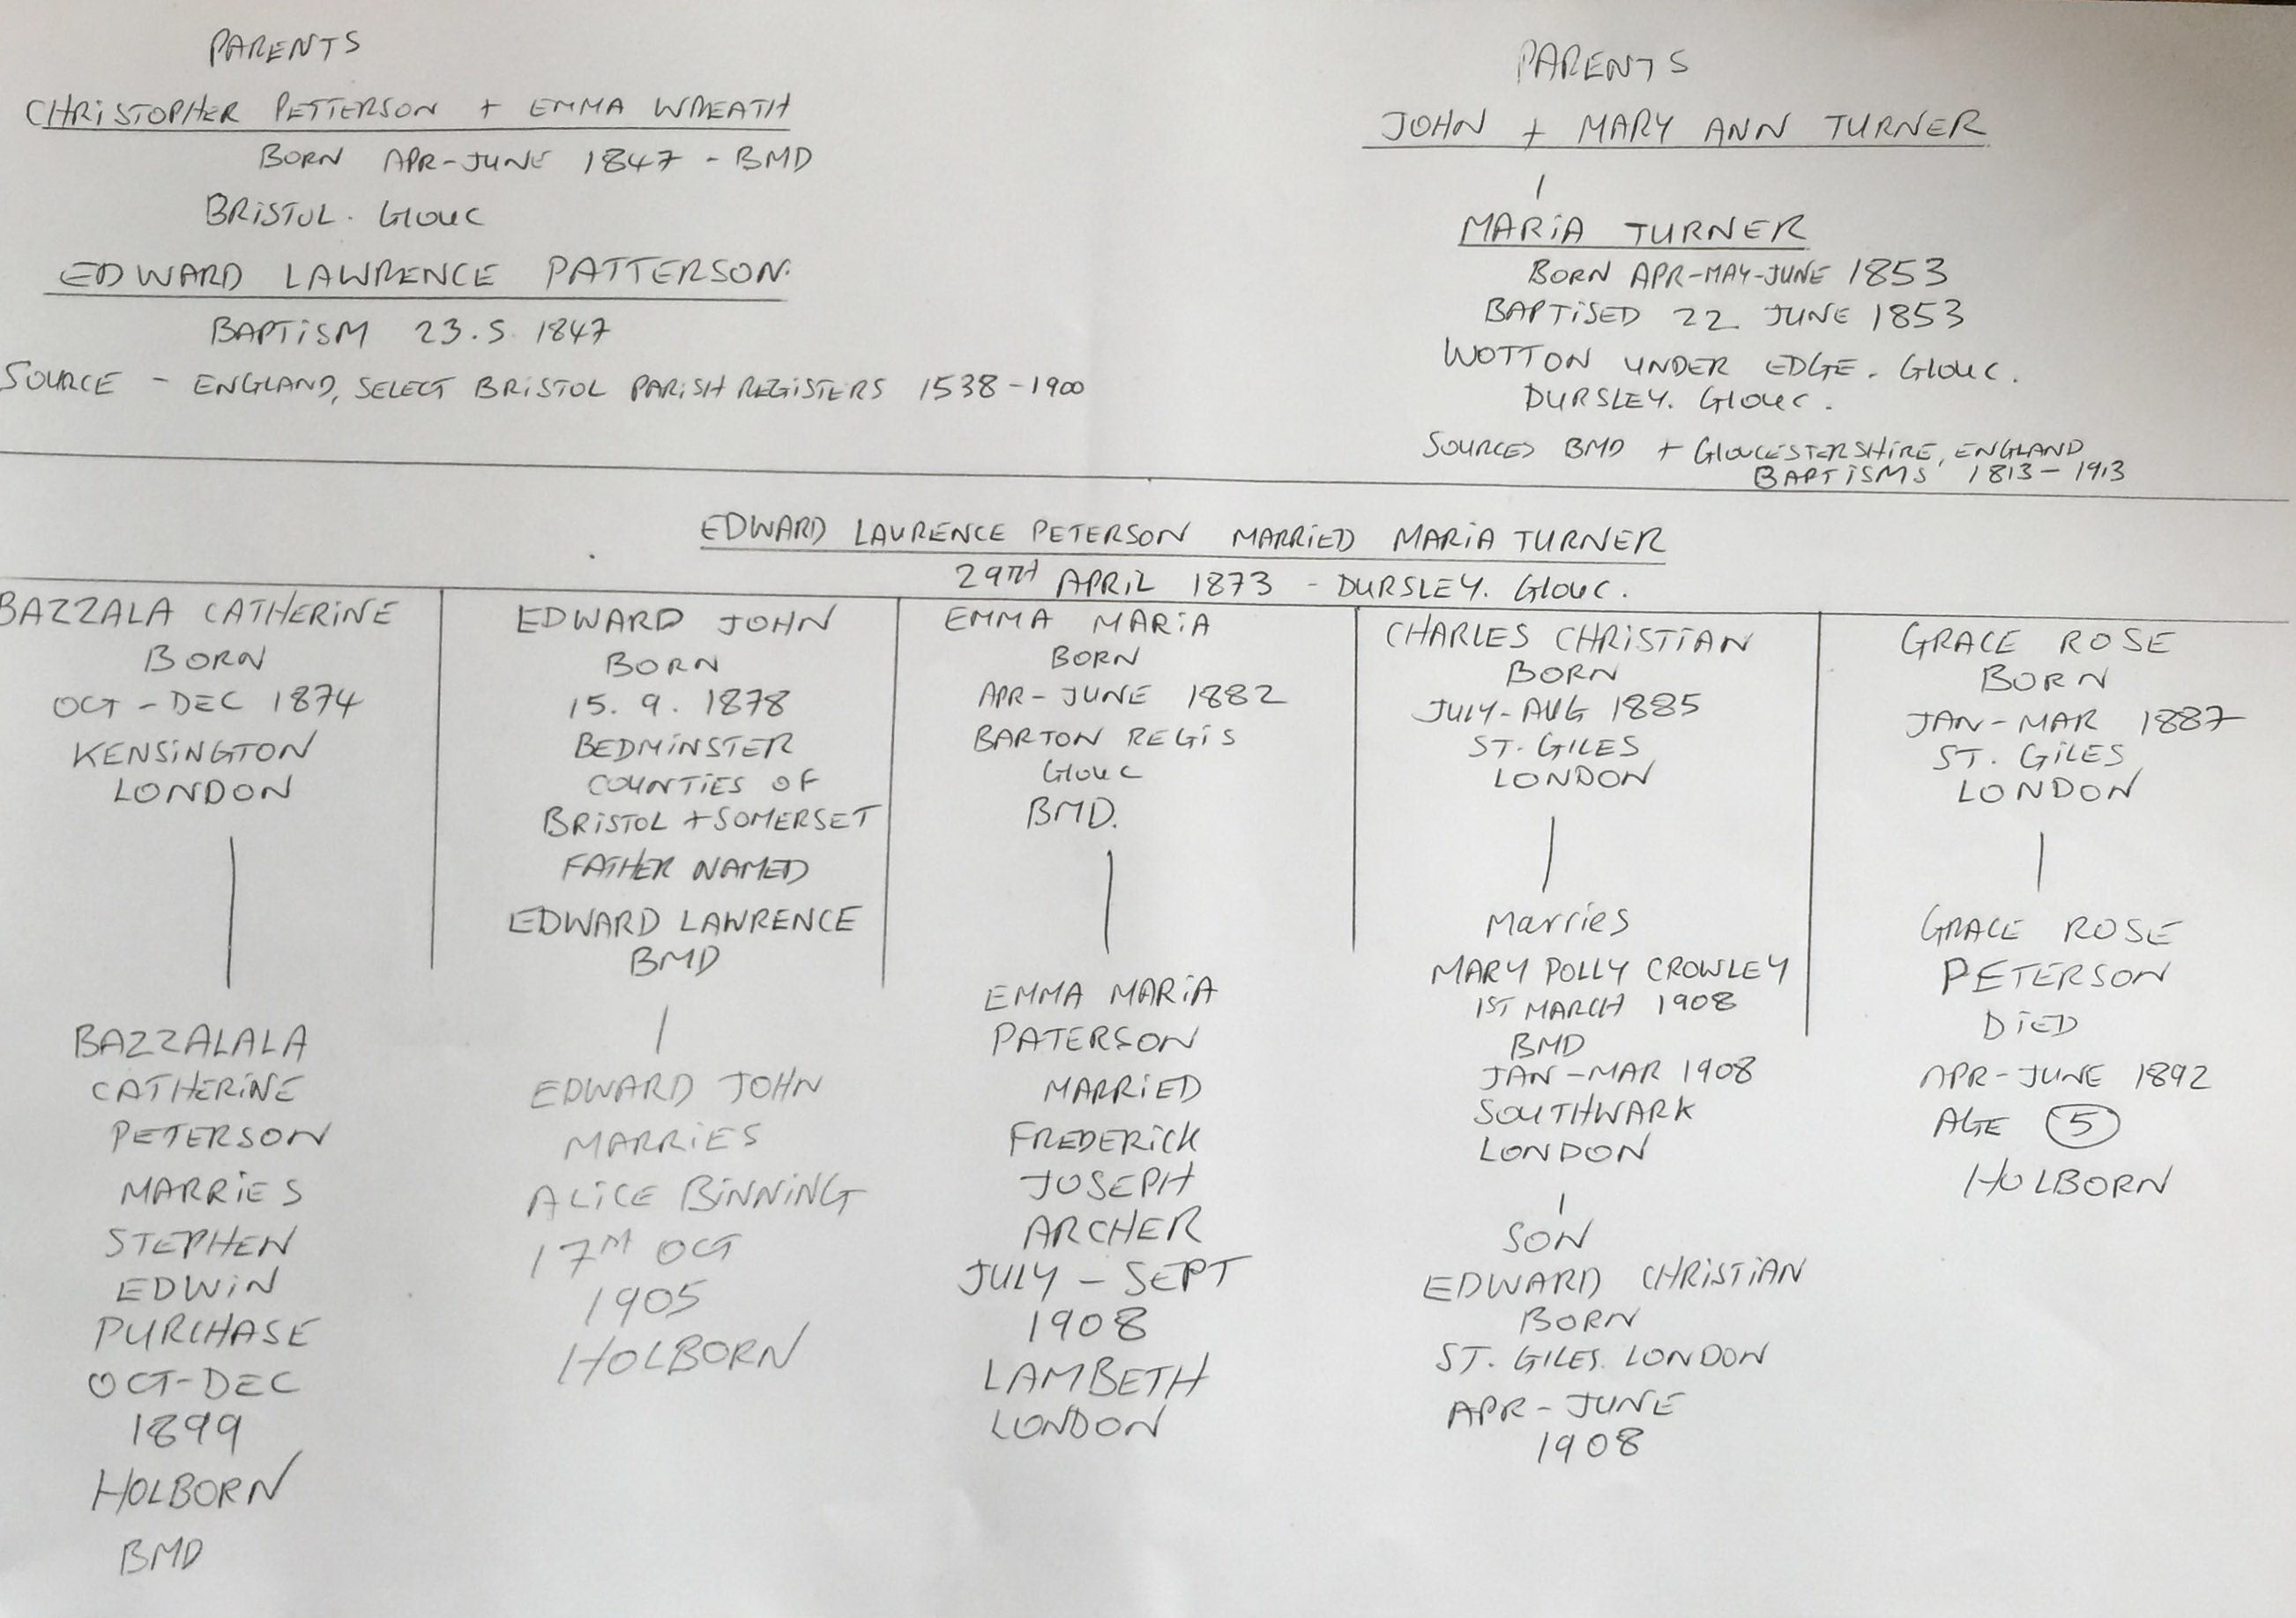 PARENTS
CHRISTOPHER PETTERSON + EMMA WREATH
BORN APR-JUNE 1847 - BMD
BRISTOL. Glouc
EDWARD LAWRENCE PATTERSON.
BAPTISM 23.5.1847
SOURCE - ENGLAND, SELECT BRISTOL PARISH REGISTERS 1538-1900
PARENTS
JOHN + MARY ANN TURNER
MARIA TURNER
BORN APR-MAY-JUNE 1853
BAPTISED 22 JUNE 1853
WOTTON UNDER EDGE. Glouc.
DURSLEY. Glouc.
SOURCES BMD + GLOUCESTERSHIRE, ENGLAND
BAPTISMS 1813-1913
EDWARD LAURENCE PETERSON MARRIED MARIA TURNER
29TH APRIL 1873 - DURSLEY. Glouc.
BAZZALA CATHERINE
BORN
OCT-DEC 1874
KENSINGTON
LONDON
BAZZALALA
CATHERINE
PETERSON
MARRIES
STEPHEN
EDWIN
PURCHASE
OCT-DEC
1899
HOLBORN
BMD
EDWARD JOHN
BORN
15.9.1878
BEDMINSTER
COUNTIES OF
BRISTOL + SOMERSET
FATHER NAMED
EDWARD LAWRENCE
BMD
EDWARD JOHN
MARRIES
ALICE BINNING
17TH OCT
1905
HOLBORN
EMMA MARIA
BORN
APR-JUNE 1882
BARTON REGIS
Glouc
BMD.
EMMA MARIA
PATERSON
MARRIED
FREDERICK
JOSEPH
ARCHER
JULY-SEPT
1908
LAMBETH
LONDON
CHARLES CHRISTIAN
BORN
JULY-AUG 1885
ST. GILES
LONDON
Marries
MARY POLLY CROWLEY
1ST MARCH 1908
BMD
JAN-MAR 1908
SOUTHWARK
LONDON
SON
EDWARD CHRISTIAN
BORN
ST. GILES. LONDON
APR-JUNE
1908
GRACE ROSE
BORN
JAN-MAR 1887
ST. GILES
LONDON
GRACE ROSE
PETERSON
DIED
APR-JUNE 1892
AGE 5
HOLBORN